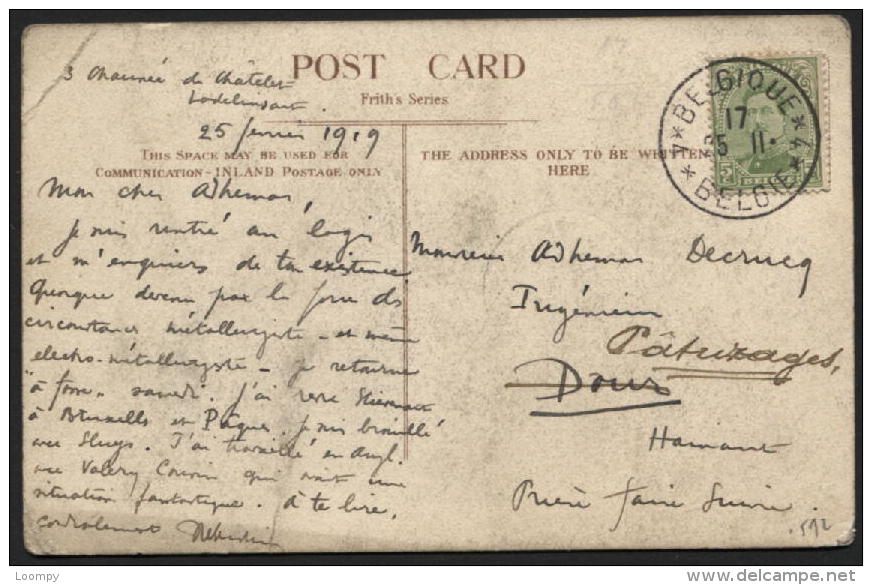 POST CARD
Frith's Series
THIS SPACE MAY BE USED FOR
COMMUNICATION - INLAND POSTAGE ONLY
THE ADDRESS ONLY TO BE WRITTEN
HERE
3 Chaussée de Châtelet
Lodelinsart.
25 février 1919
Mon cher Adhemar,
Je suis rentré au logis
et m'enquiers de ton existence
Quoique devenu par la force des
circonstances métallurgiste - et même
electro-métallurgiste - je retourne
"à fosse" samedi. J'ai revu
à Bruxelles et Pâques. Je suis brouillé
avec Sluys. J'ai travaillé en Angl.
avec Valéry Cousin qui avait une
situation fantastique. à te lire,
cordialement
BELGIQUE
17
25 II.
4 * BELGIE * 4
Monsieur Adhemar Decrucq
Ingénieur
Pâturages,
Dour
Hainaut
Prière faire suivre.
592
Loompy
www.delcampe.net